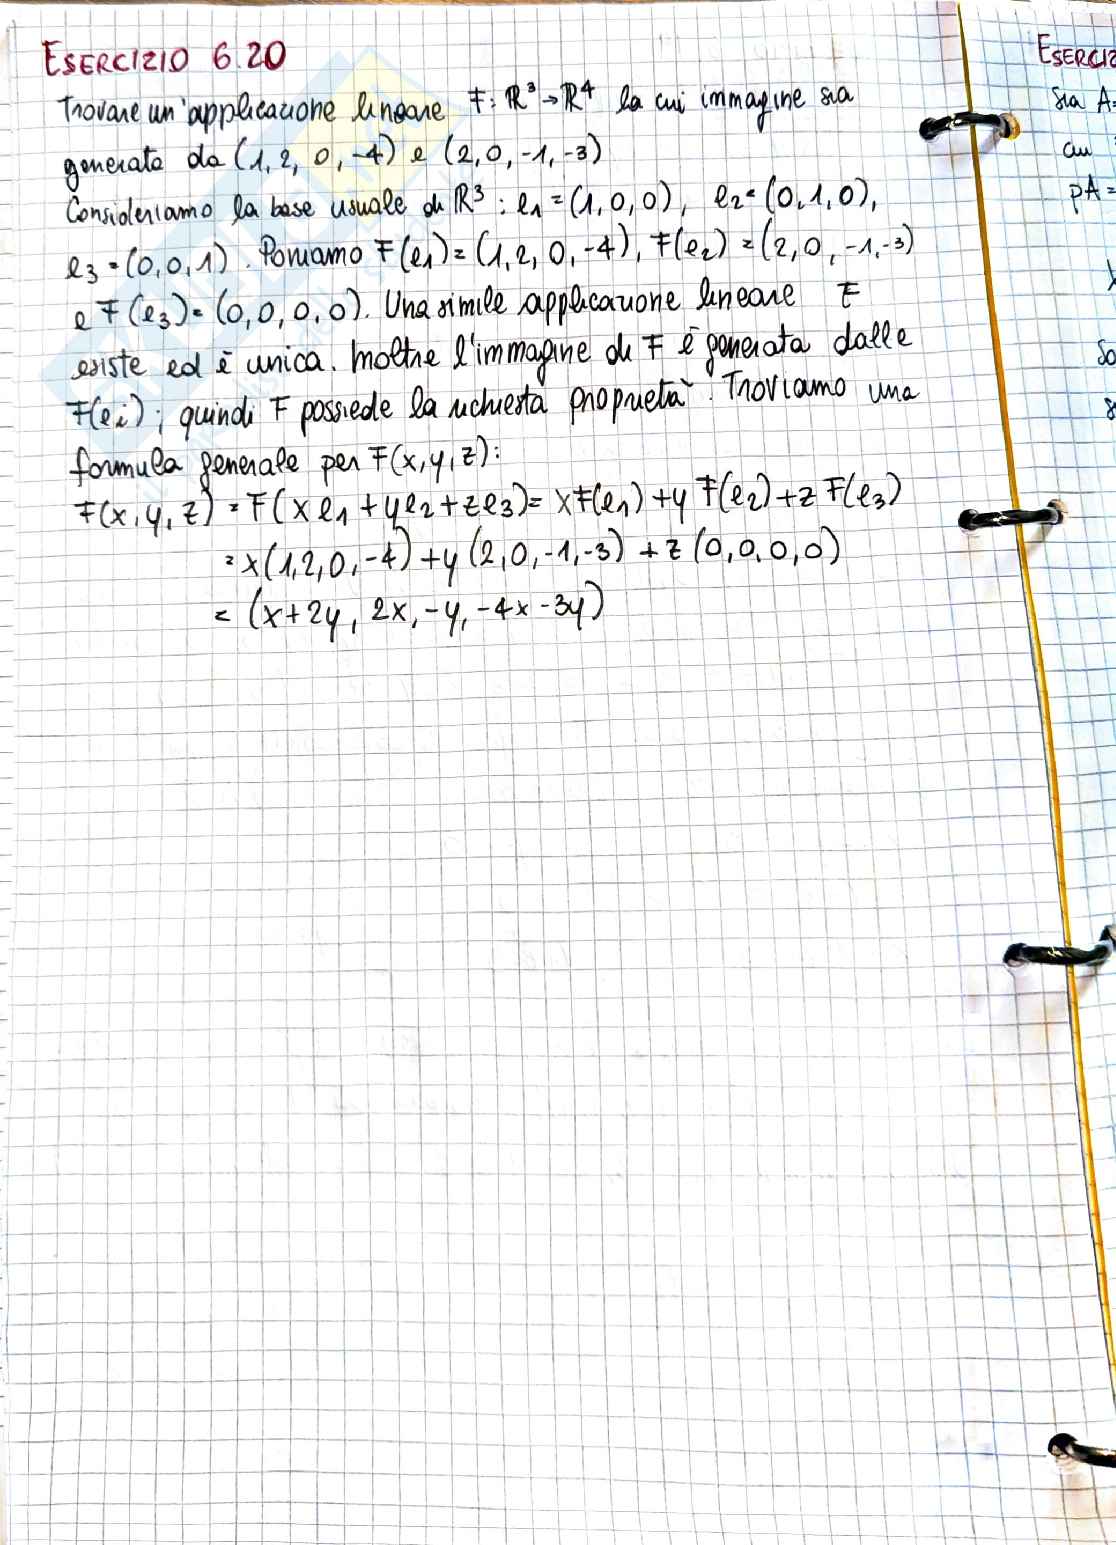 ESERCIZIO 6.20
Trovare un'applicazione lineare F: ℝ³→ℝ⁴ la cui immagine sia
generata da (1, 2, 0, -4) e (2, 0, -1, -3)
Consideriamo la base usuale di ℝ³: e₁ = (1, 0, 0), e₂ = (0, 1, 0),
e₃ = (0, 0, 1). Poniamo F(e₁) = (1, 2, 0, -4), F(e₂) = (2, 0, -1, -3)
e F(e₃) = (0, 0, 0, 0). Una simile applicazione lineare F
esiste ed è unica. Inoltre l'immagine di F è generata dalle
F(eᵢ); quindi F possiede la richiesta proprietà. Troviamo una
formula generale per F(x, y, z):
F(x, y, z) = F(xe₁ + ye₂ + ze₃) = xF(e₁) + yF(e₂) + zF(e₃)
= x(1, 2, 0, -4) + y(2, 0, -1, -3) + z(0, 0, 0, 0)
= (x+2y, 2x, -y, -4x-3y)
ESERCIZ
Sia A=
cui
pA =
So